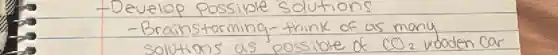 -Develop possible solutions
-Brainstorming-think of as many
solutions as possible of CO2 wooden car